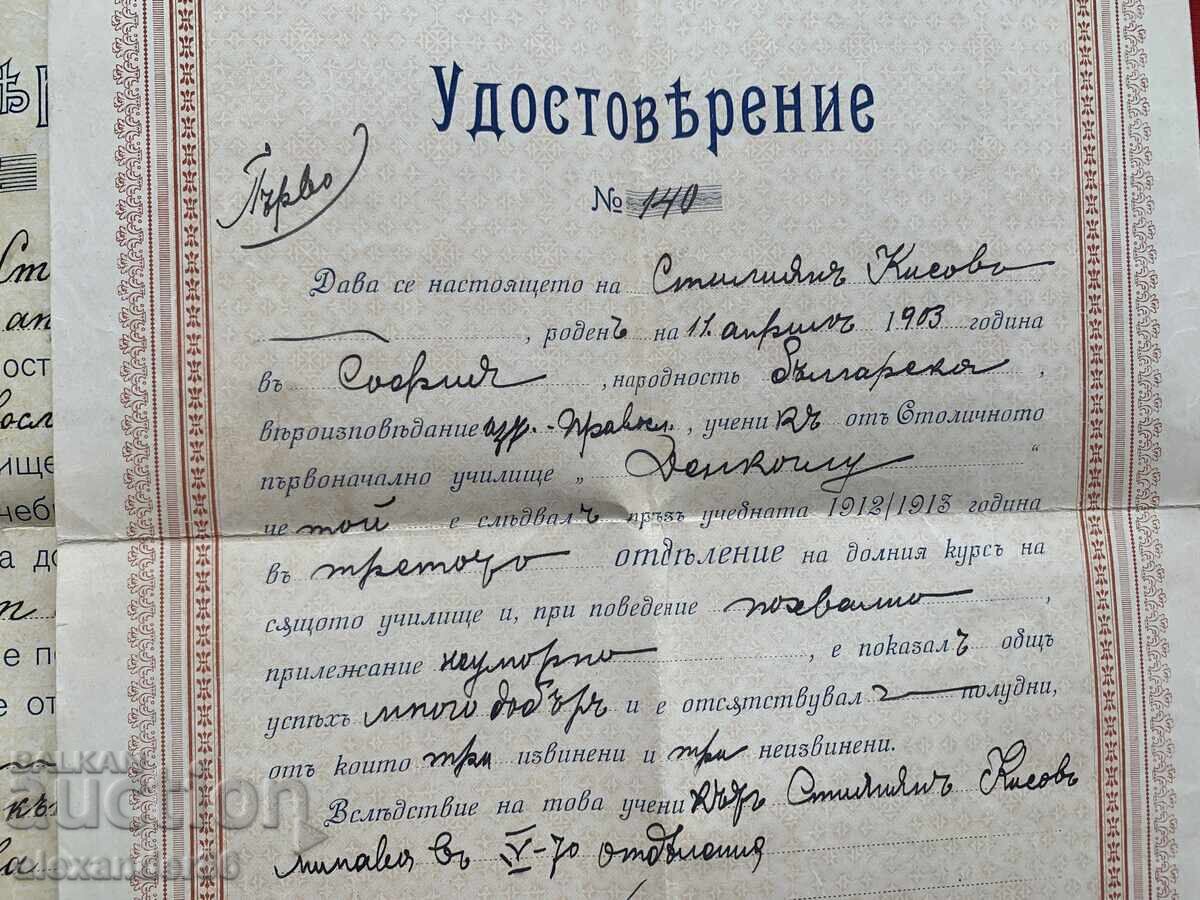 Удостовѣрение
Първо
№ 140
Дава се настоящето на Стилиянъ Кисовъ
, роденъ на 11. априлъ 1903 година
въ София , народность българска ,
вѣроизповѣдание изт.-правосл. , ученикъ отъ Столичното
първоначално училище „ Денкоглу “
че той е слѣдвалъ прѣзъ учебната 1912/1913 година
въ третото отдѣление на долния курсъ на
сѫщото училище и, при поведение похвално ,
прилежание неуморно , е показалъ общъ
успѣхъ много добъръ и е отсѫтствувал полудни,
отъ които три извинени и три неизвинени.
Вслѣдствие на това ученикътъ Стилиянъ Кисовъ
минава въ IV-то отдѣления
ѣр
Ст
ап
ост
восл
ище
чеб
а до
е по
е от
къ
ва
BALKAN
auction
alexander86